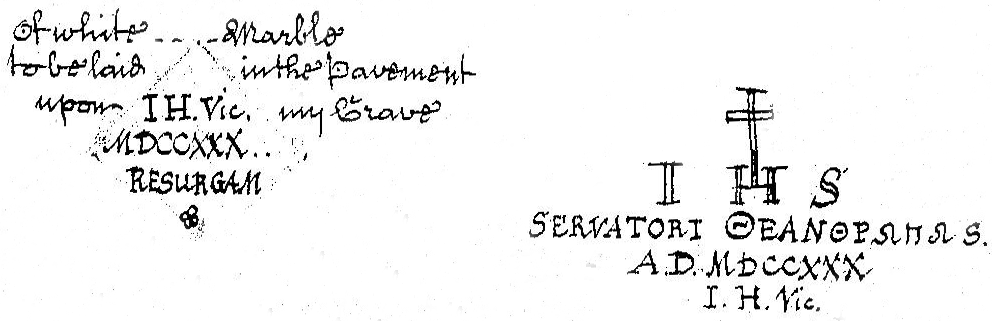 Of white - - . - Marble
to be laid in the Pavement
upon I H. Vic. my Grave
MDCCXXX..
RESURGAM
I H S
SERVATORI ΘΕΑΝΘΡΩΠΩ S.
A.D. MDCCXXX
I. H. Vic.